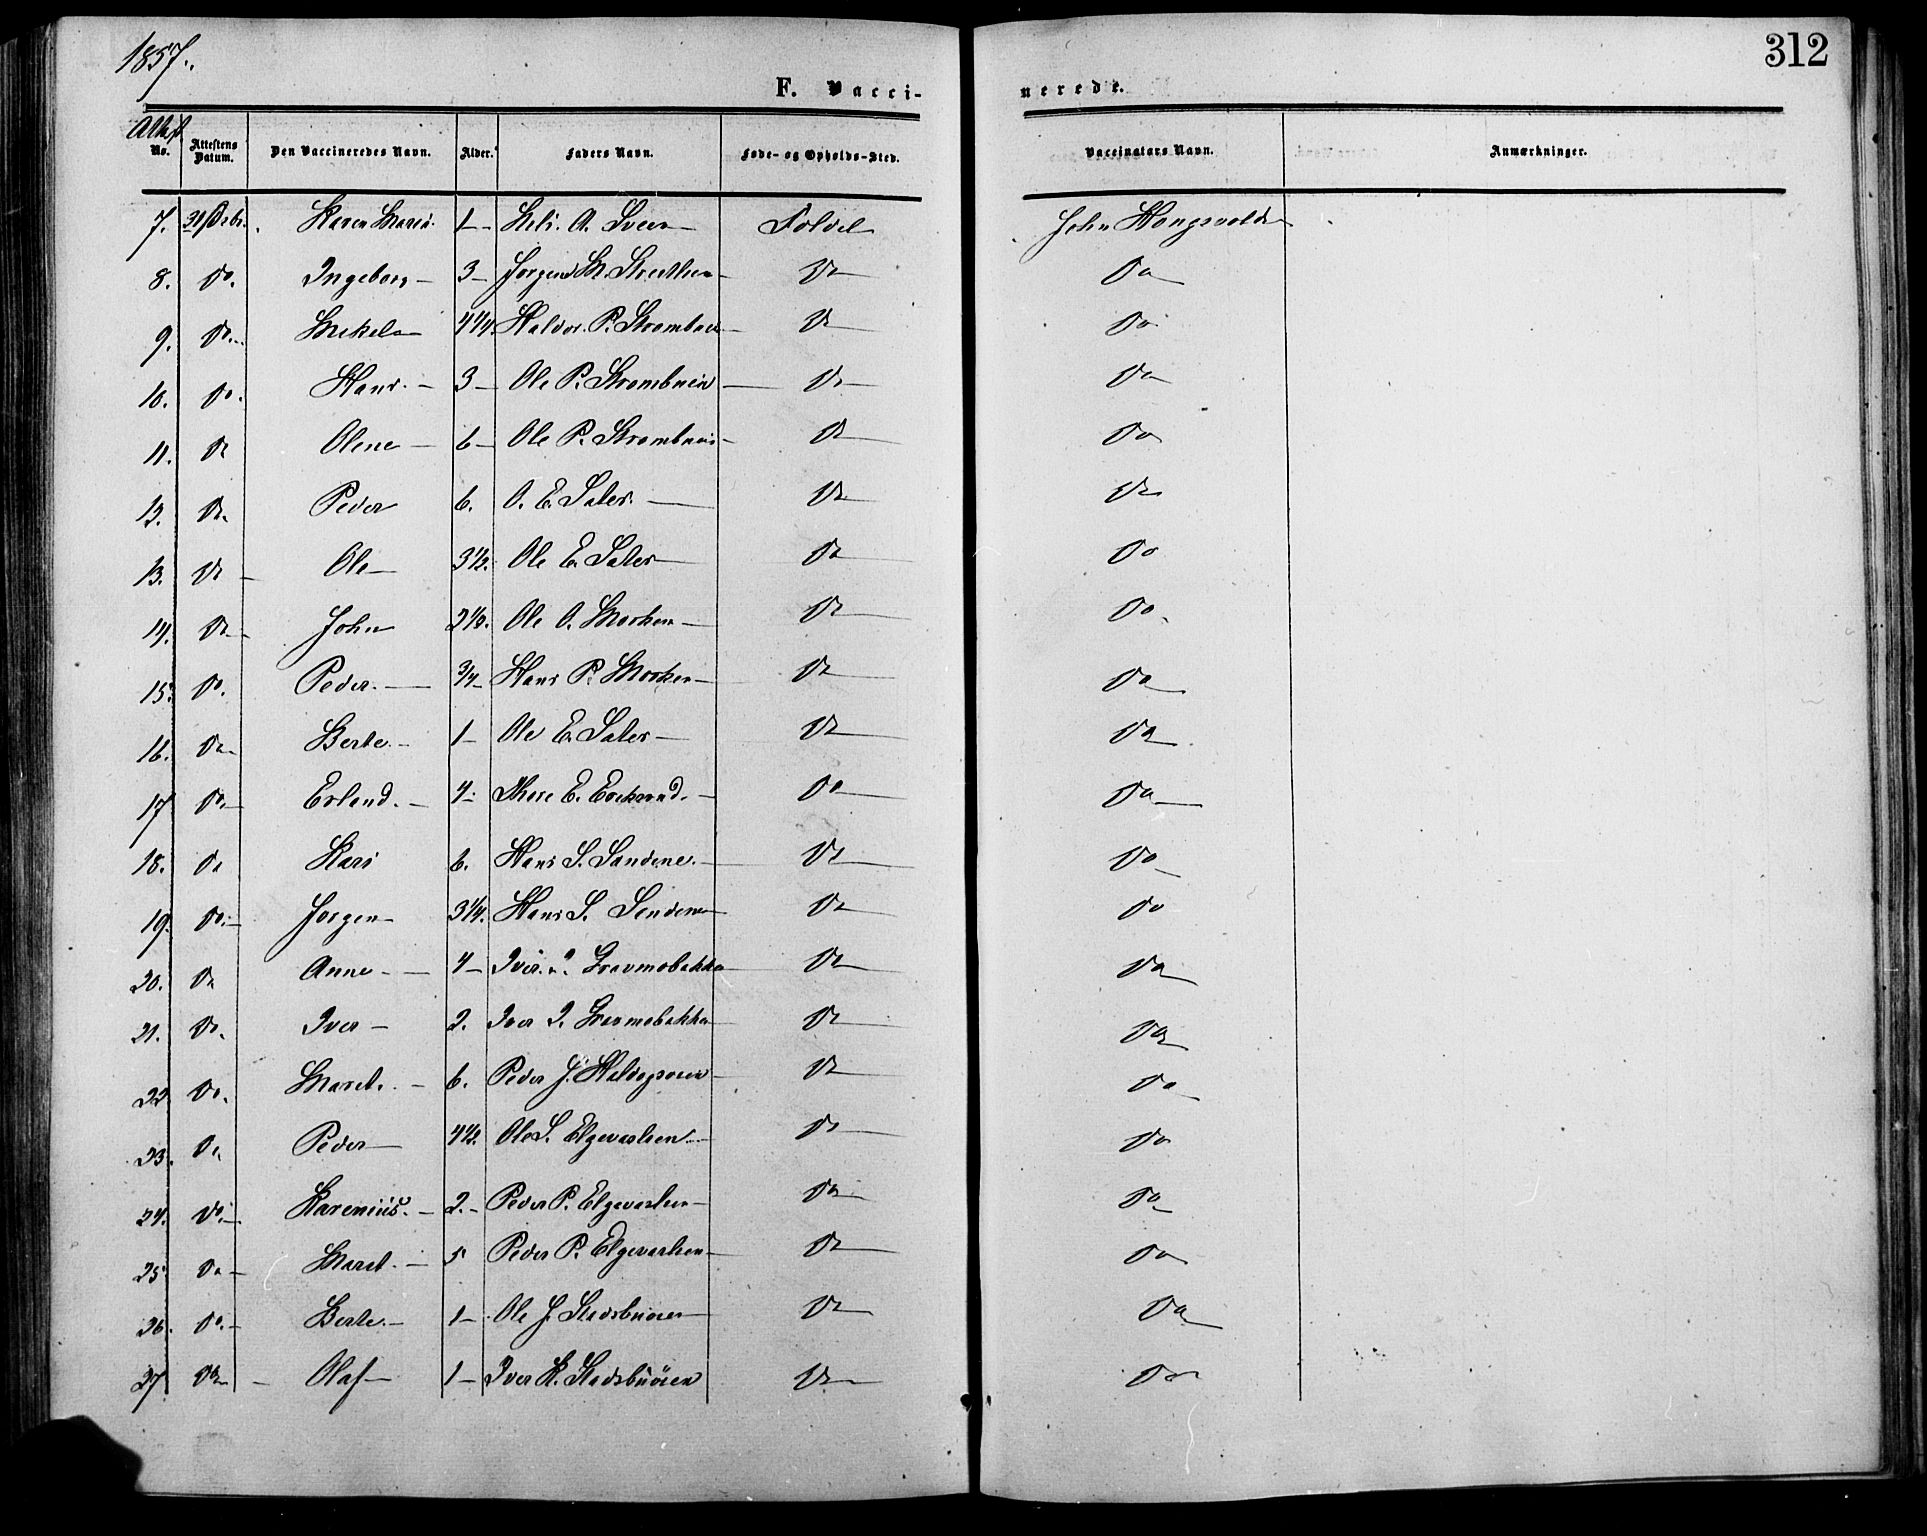 1857.
312
F. Vacci-
nerede.
Attest
No. Attestens Datum. Den Vaccineredes Navn. Alder. Faders Navn. Føde- og Opholds-Sted. Vaccinators Navn. Anmærkninger.
7. 31 Karen Marie. 1 A. Foldel John
8. Do. Ingeborg 3 Jørgen M. Do Do
9. Do. Mikel 4 1/4. Halvor P. Strømbuen Do Do
10. Do. Hans 3 Ole P. Strømbuen Do Do
11. Do Olene 6 Ole P. Strømbuen Do Do
12. Do. Peder 6. O. E. Sater. Do Do
13. Do Ole 3 1/2. Ole E. Sater Do Do
14. Do John 2 1/2. Ole O. Morken Do Do.
15. Do. Peder. 3/4 Hans P. Morken Do Do
16. Do. Berte. 1 Ole E. Sater Do Do
17 Do. Erlend. 4 E. Do Do
18. Do Kari 6. Hans S. Sandene. Do Do
19. Do. Jørgen 3 1/4. Hans S. Sandene Do Do
20. Do Anne 4 Iver I. Gravmobakka Do Do
21. Do. Iver 2. Iver I. Gravmobakka Do Do
22 Do. Maret. 6. Peder J. Do Do
23. Do Peder 4 1/2. Ole S. Elgevashen Do Do
24. Do. Karenius. 2. Peder P. Elgevashen Do Do
25 Do Maret. 5 Peder P. Elgevashen Do Do
26. Do. Berte. 1 Ole J. Stadsbuøien Do Do
27 Do Olaf 1 Iver K. Stadsbuøien Do Do